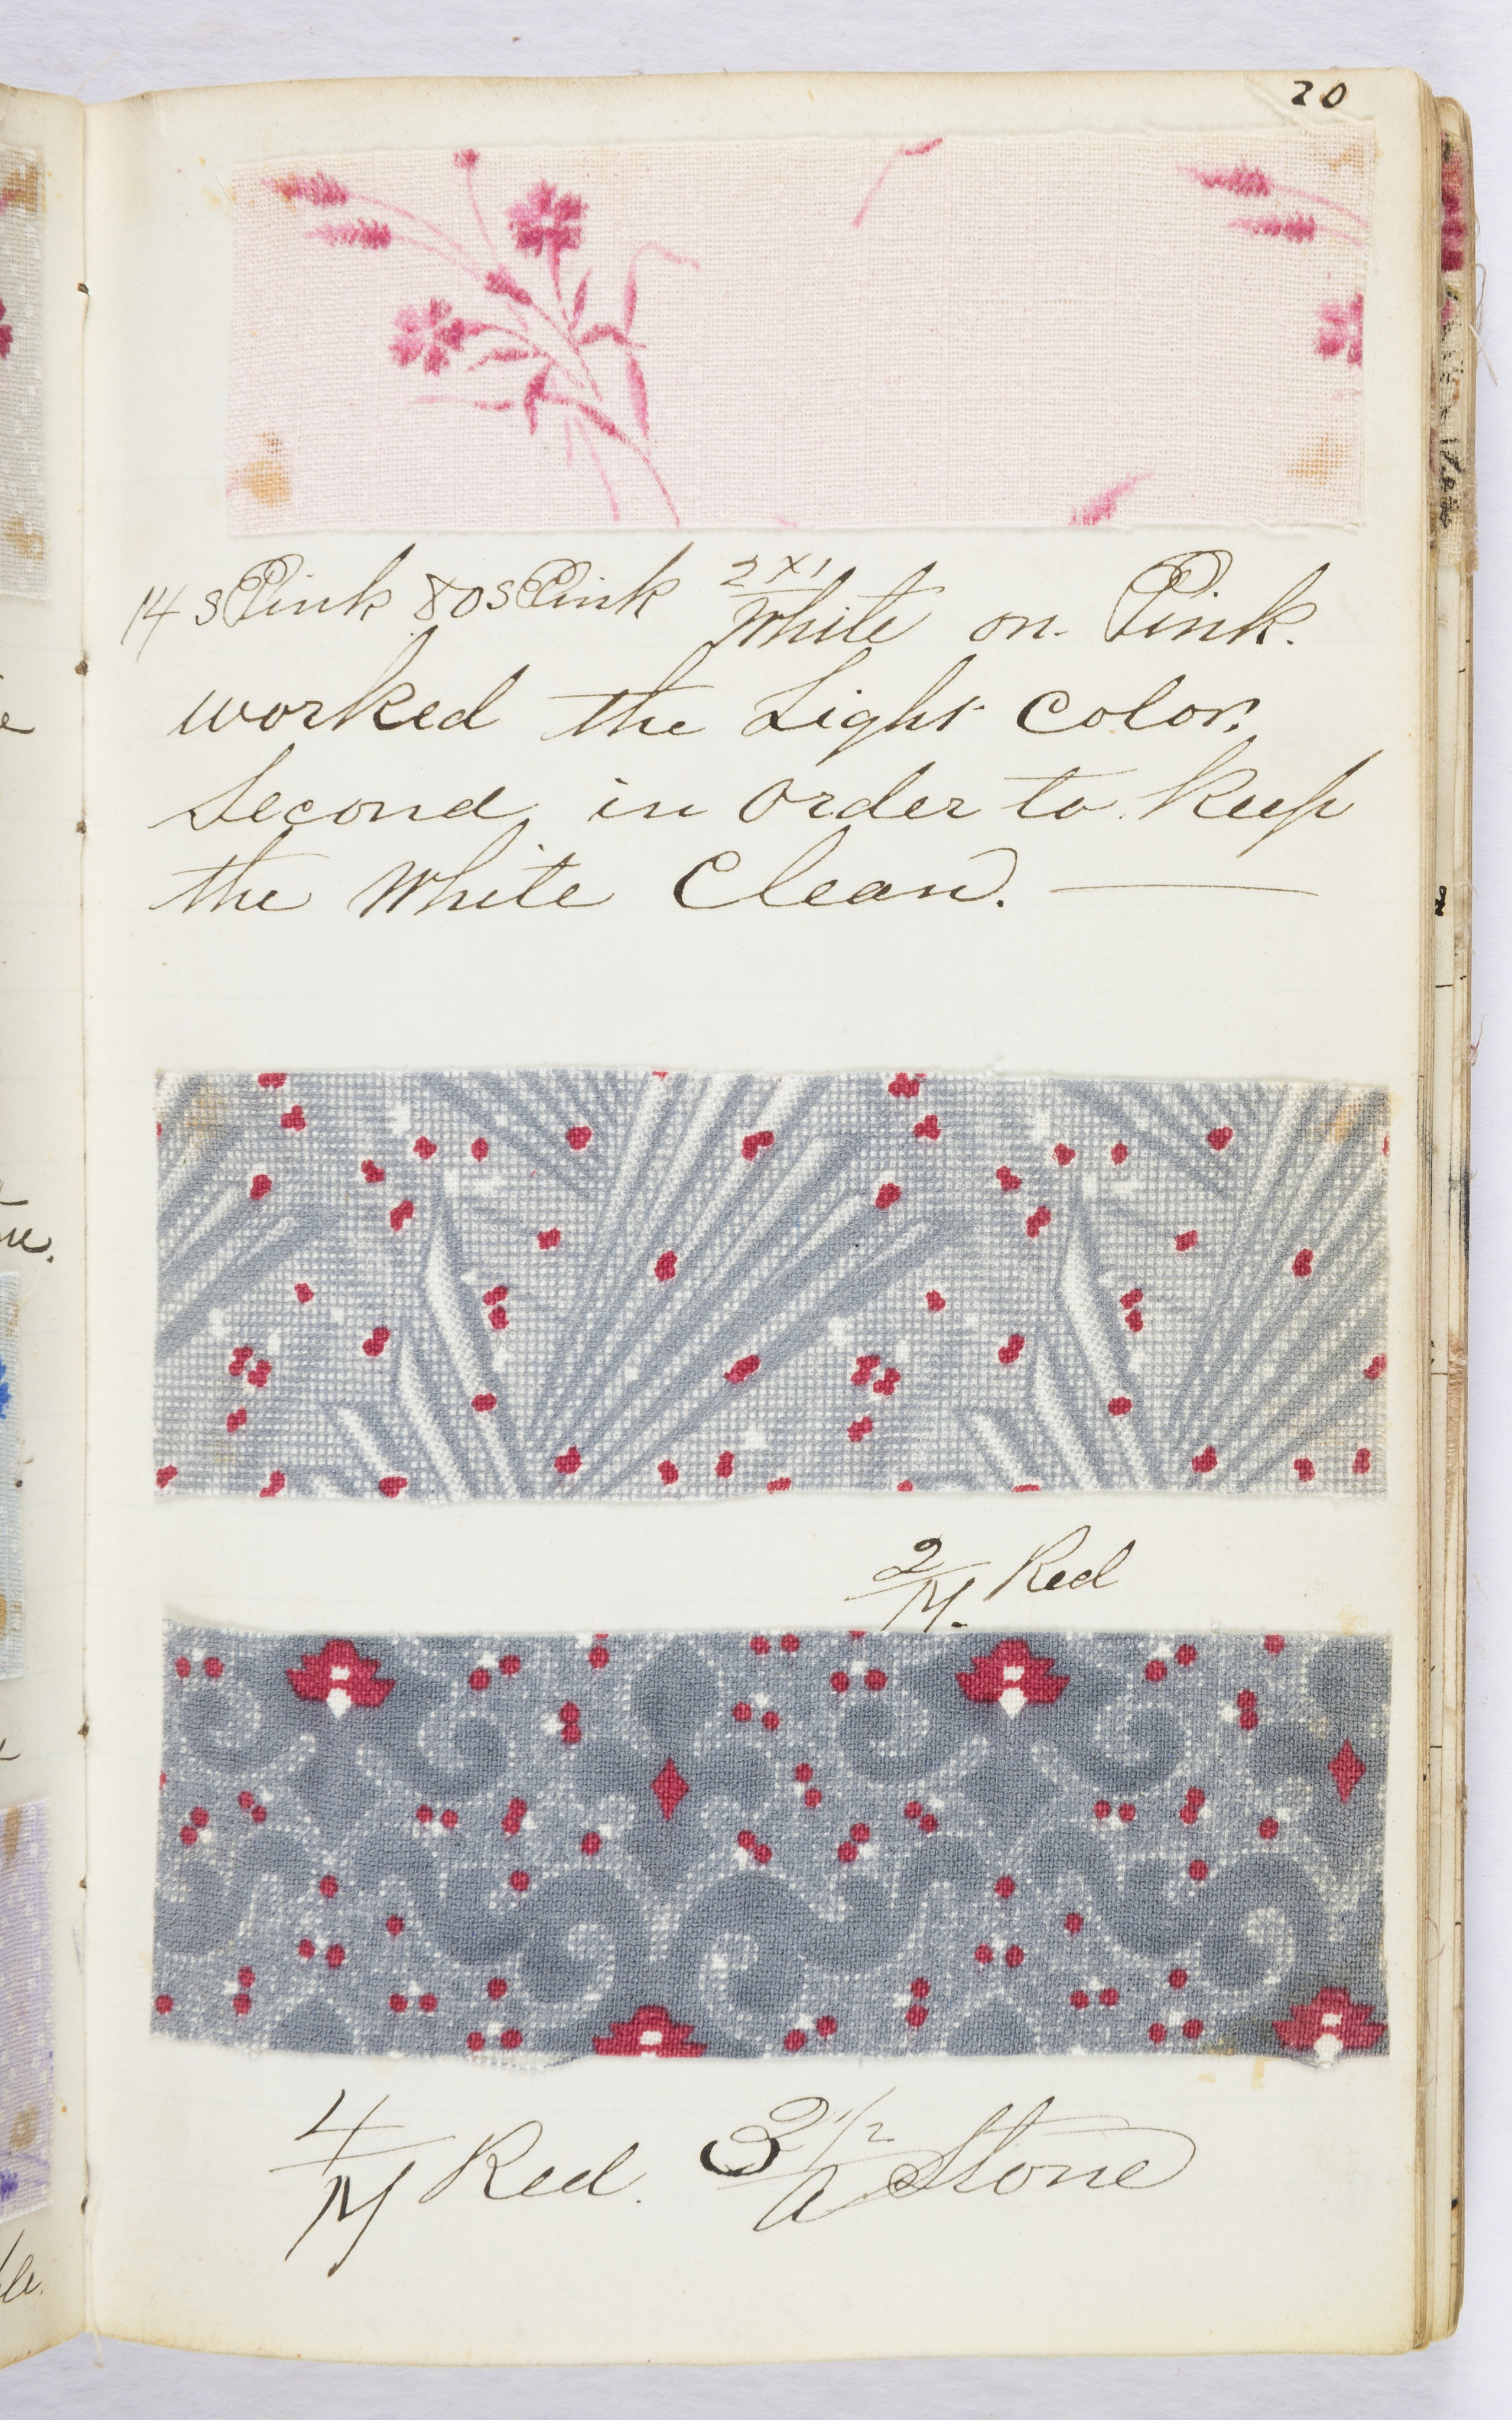 20
14 s Pink 80 s Pink 2x1 White on Pink.
worked the Light Color.
Second in Order to Keep
the White Clean.
2/M. Red
4/M Red. 3 1/2 / A Stone